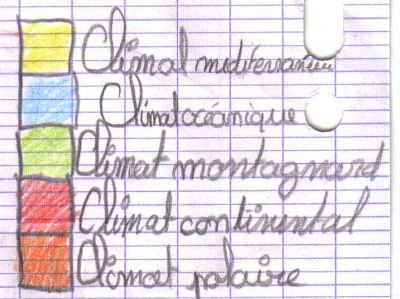 Climat méditerranéen
Climat océanique
Climat montagnard
Climat continental
Climat polaire